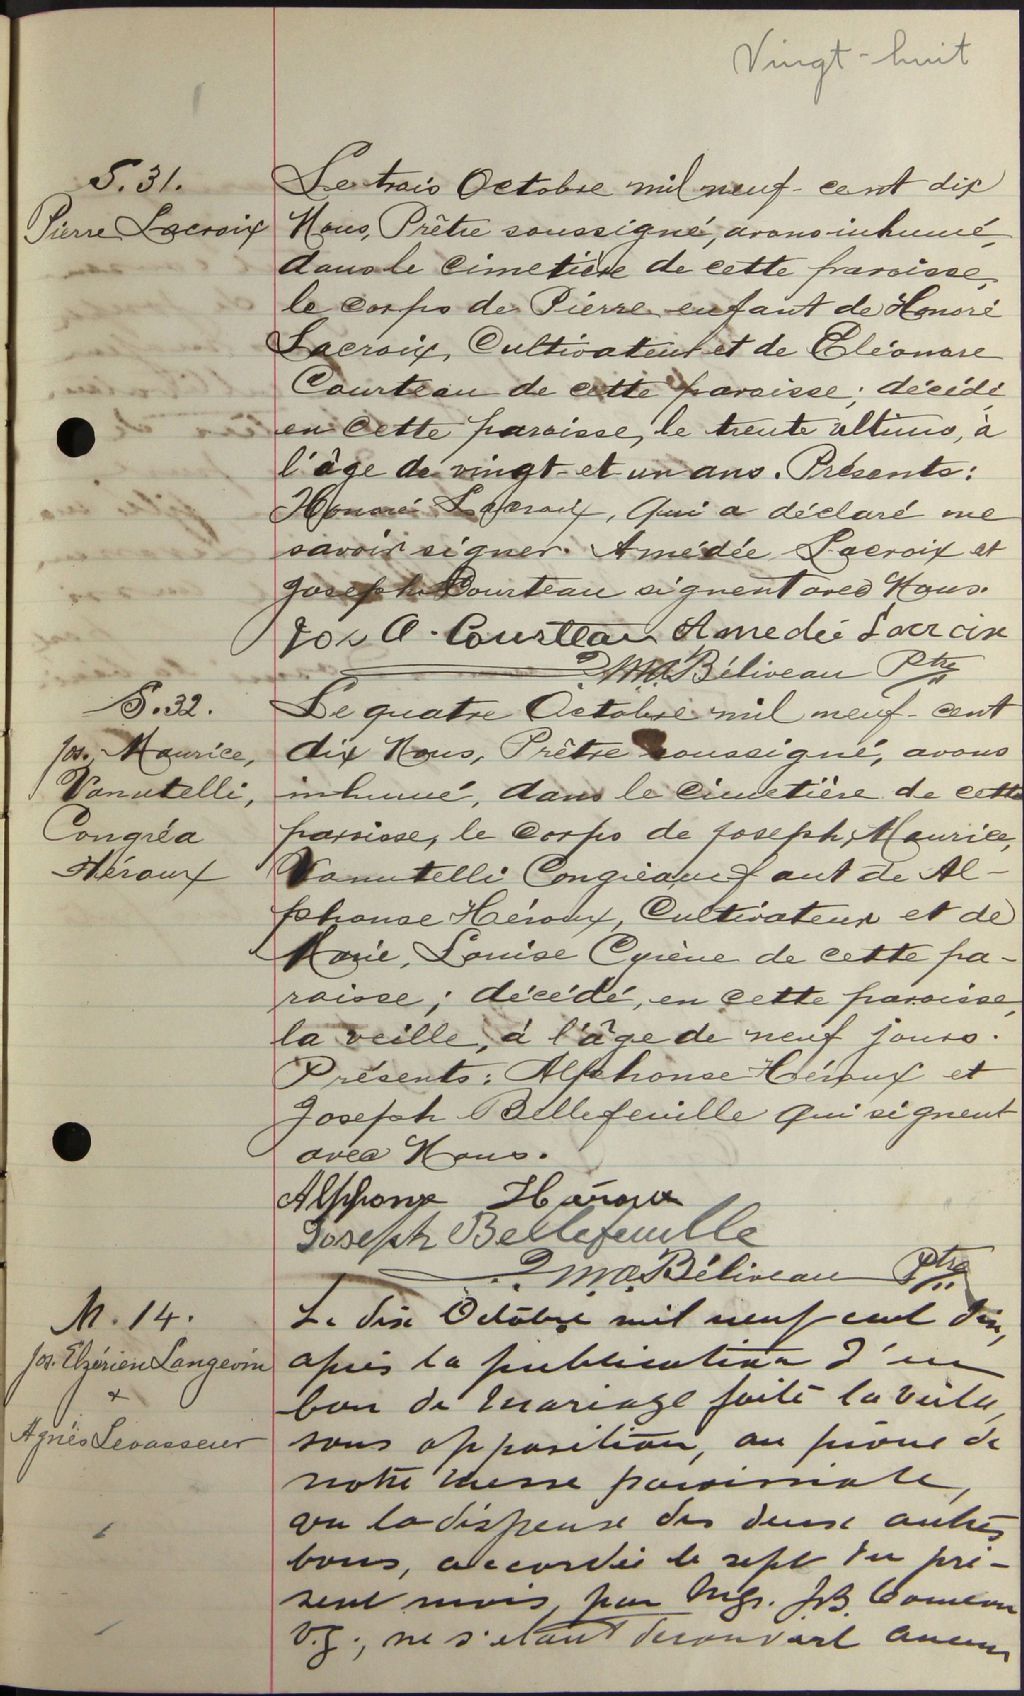 Vingt-huit
S. 31.
Pierre Lacroix
Le trois Octobre mil neuf-cent dix
Nous, Prêtre soussigné, avons inhumé,
dans le cimetière de cette paroisse,
le corps de Pierre enfant de Honoré
Lacroix, Cultivateur et de Eléonore
Courteau de cette paroisse; décédé
en cette paroisse, le trente ultimo, à
l'âge de vingt-et un ans. Présents:
Honoré Lacroix, qui a déclaré ne
savoir signer. Amédée Lacroix et
Joseph Courteau signent avec Nous.
Jos A. Courteau Amedée Lacroix
Béliveau Ptre
S. 32.
Jos. Maurice,
Vanutelli,
Congréa
Héroux
Le quatre Octobre mil neuf-cent
dix Nous, Prêtre soussigné, avons
inhumé, dans le cimetière de cette
paroisse, le corps de Joseph, Maurice,
Vanutelli Congréa enfant de Al-
phonse Héroux, Cultivateur et de
Marie, Louise Cyrène de cette pa-
roisse; décédé, en cette paroisse,
la veille, à l'âge de neuf jours.
Présents: Alphonse Héroux et
Joseph Bellefeuille qui signent
avec Nous.
Alphonse Héroux
Joseph Bellefeuille
Béliveau Ptre
M. 14.
Jos. Elzérien Langevin
+
Agnès Levasseur
Le dix Octobre mil neuf cent dix,
après la publication d'un
ban de mariage faite la veille,
sans opposition, au prône de
notre messe paroissiale,
vu la dispense des deux autres
bans, accordée le sept du pré-
sent mois, par Mgr. J.B. Comeau
V.g.; ne s'étant découvert aucun